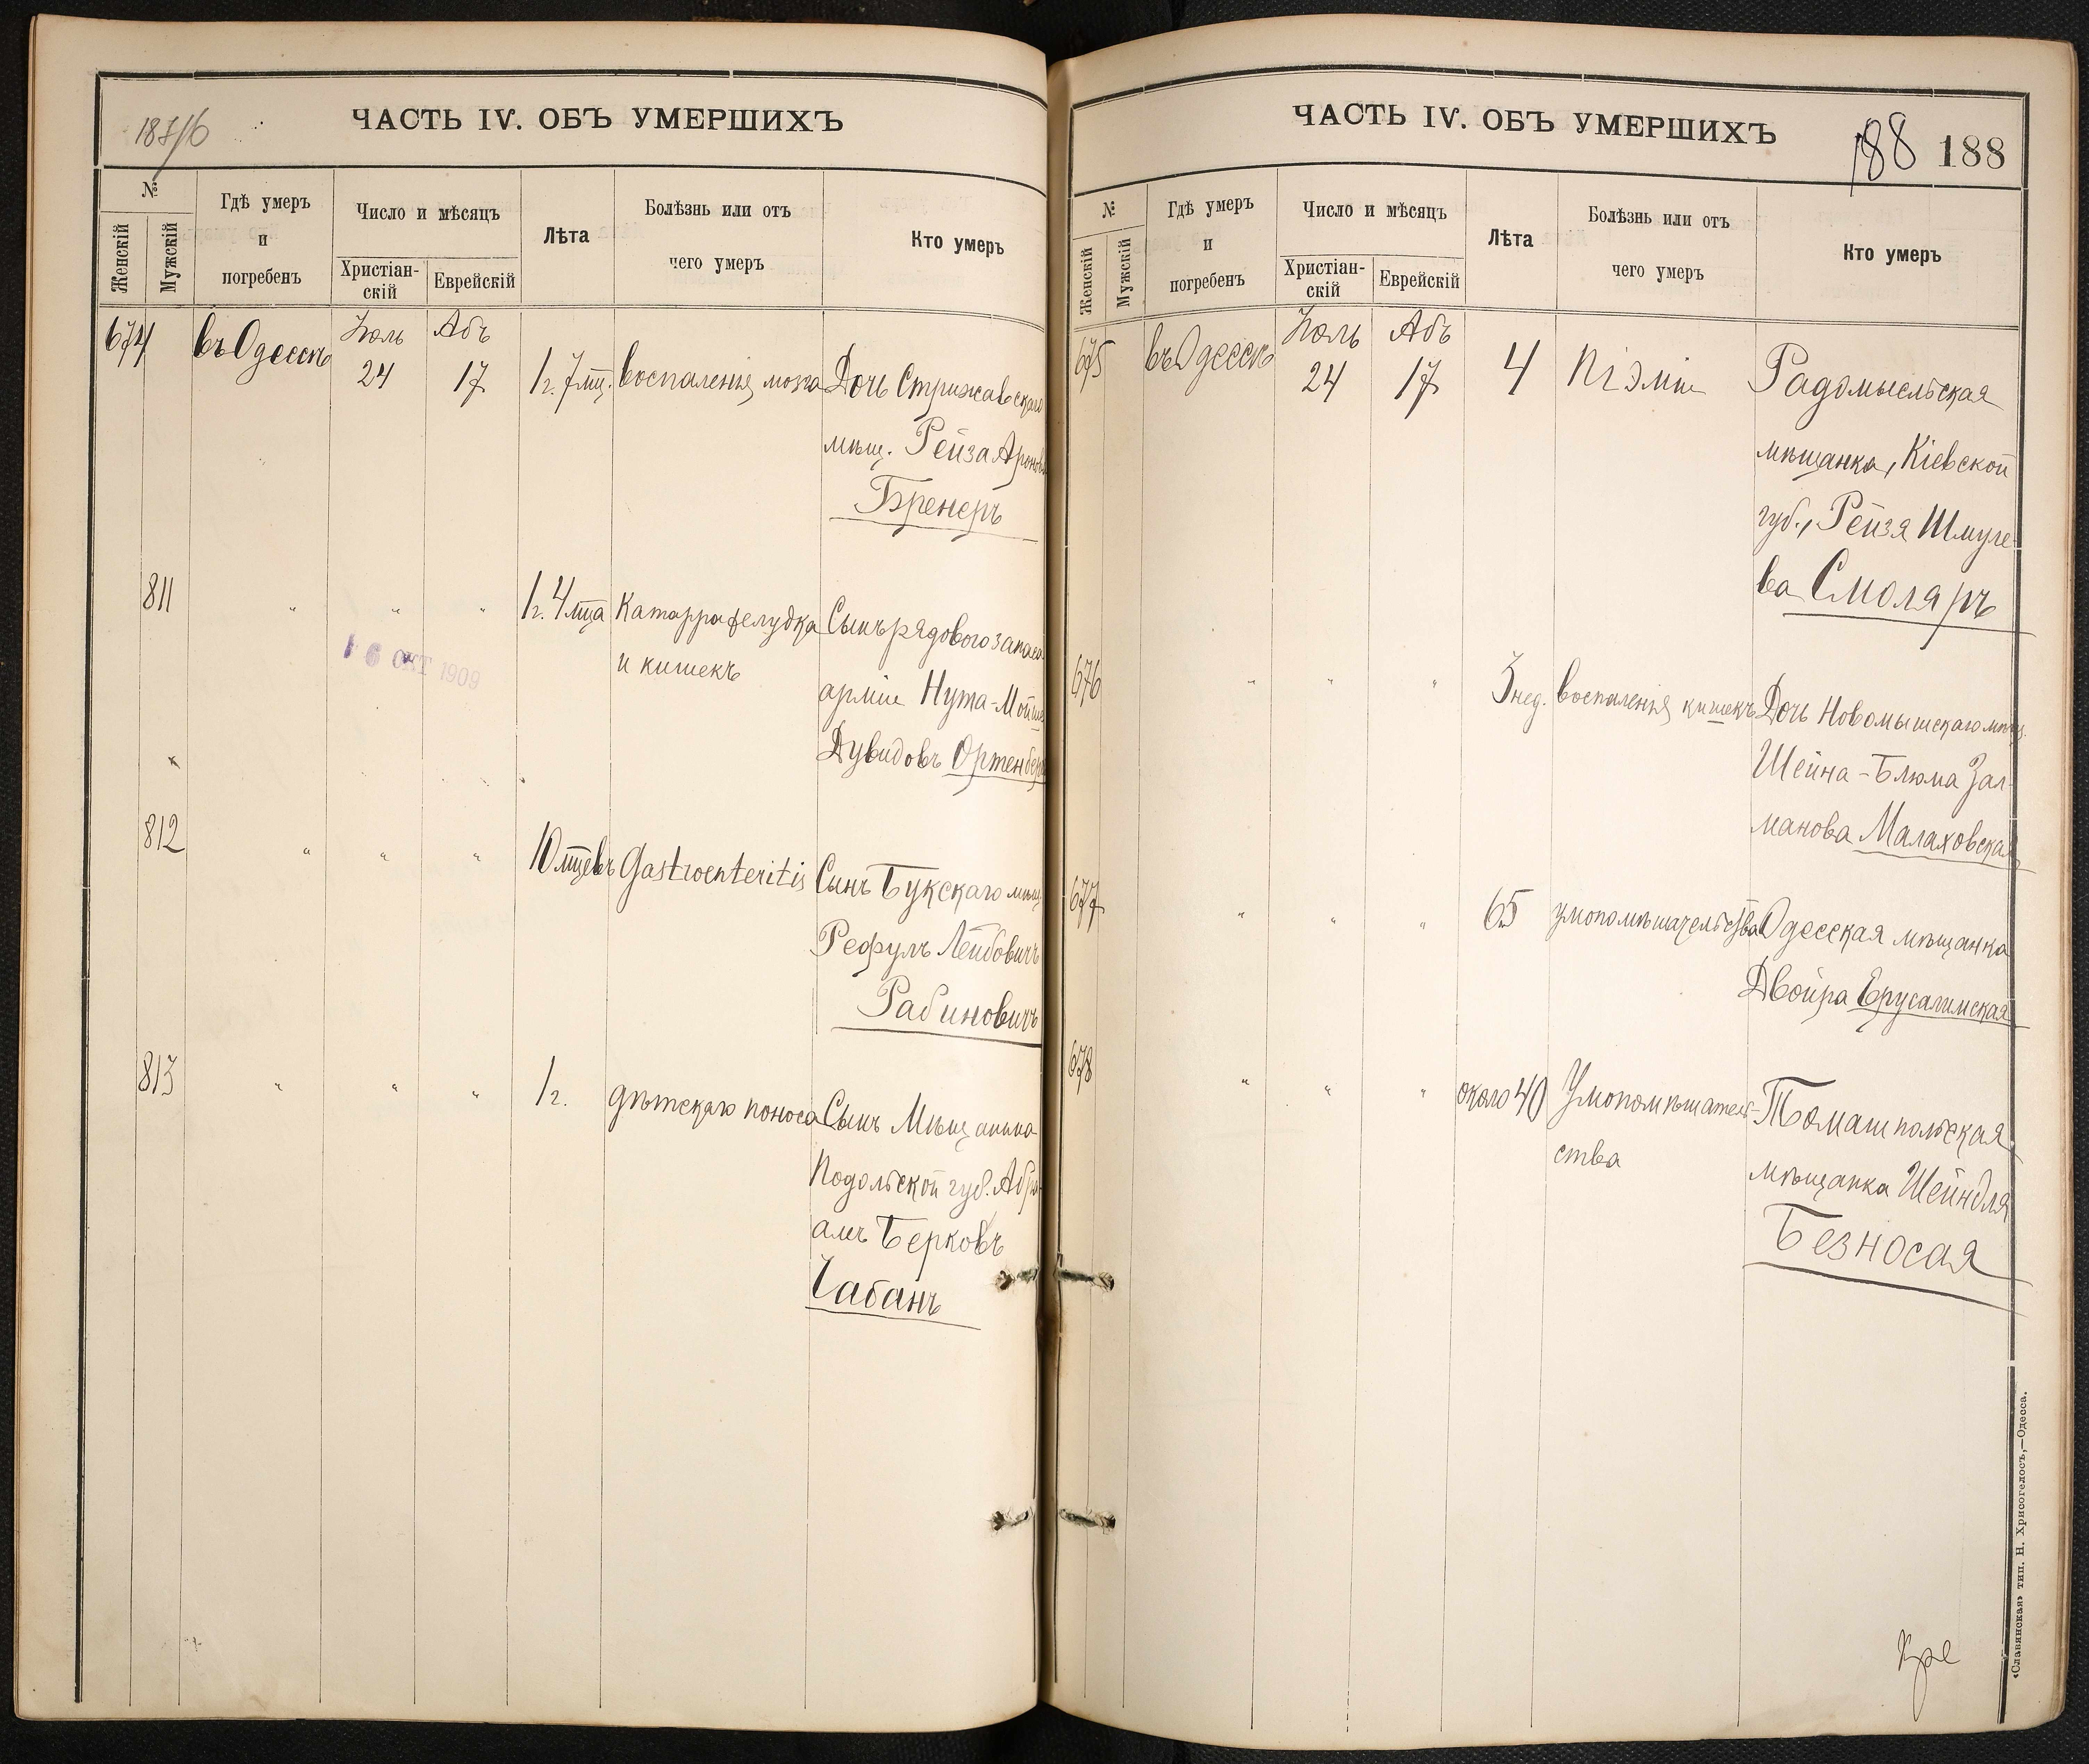 187/б
ЧАСТЬ IV. ОБЪ УМЕРШИХЪ
№
Женскій
Мужскій
Гдѣ умеръ
и
погребенъ
Число и мѣсяцъ
Христіан-
скій
Еврейскій
Лѣта
Болѣзнь или отъ
чего умеръ
Кто умеръ
674 въ Одессѣ Іюль 24 Абъ 17 1 г. 7 мц. воспаленія мозга Дочь Стрижавскаго
мѣщ. Рейза Аронова
Бренеръ
811 " " " 1 г. 4 мца Катарра желудка Сынъ рядового запаса
и кишекъ арміи Нута-Мойше
Дувидовъ Ортенбергъ
16 ОКТ 1909
812 " " " 10 мцевъ Gastroenteritis Сынъ Букскаго мѣщ.
Рефулъ Лейбовичъ
Рабиновичъ
813 " " " 1 г. дѣтскаго поноса Сынъ Мѣщанина
Подольской губ. Абра-
амъ Берковъ
Чабанъ
ЧАСТЬ IV. ОБЪ УМЕРШИХЪ
188 188
№
Женскій
Мужскій
Гдѣ умеръ
и
погребенъ
Число и мѣсяцъ
Христіан-
скій
Еврейскій
Лѣта
Болѣзнь или отъ
чего умеръ
Кто умеръ
675 въ Одессѣ Іюль 24 Абъ 17 4 Піэміи Радомысльская
мѣщанка, Кіевской
губ., Рейзя Шмуле-
ва Смоляръ
676 " " " 3 нед. воспаленія кишекъ Дочь Новомышскаго мѣщ.
Шейна-Блюма Зал-
манова Малаховская
677 " " " 65 умопомѣшательства Одесская мѣщанка
Двойра Ерусалимская
678 " " " около 40 Умопомѣшатель- Томашпольская
ства мѣщанка Шейндля
Безносая
«Славянская» тип. Н. Хрисогелосъ,—Одесса.